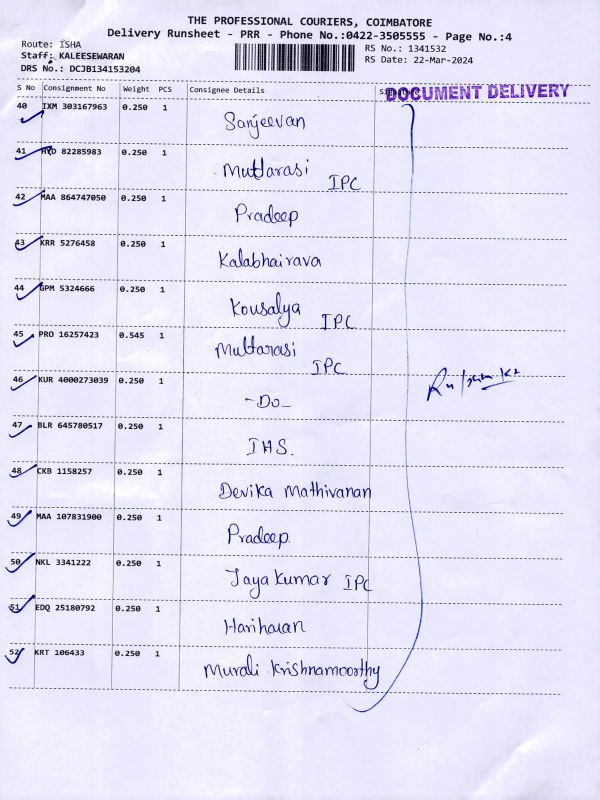 THE PROFESSIONAL COURIERS, COIMBATORE
Delivery Runsheet - PRR - Phone No.:0422-3505555 - Page No.:4
Route: ISHA
Staff: KALEESEWARAN
DRS No.: DCJB134153204
RS No.: 1341532
RS Date: 22-Mar-2024
S No Consignment No Weight PCS Consignee Details
DOCUMENT DELIVERY
40 IXM 303167963 0.250 1 Sanjeevan
41 HYD 82285983 0.250 1 Muttarasi IPC
42 MAA 864747050 0.250 1 Pradeep
43 KRR 5276458 0.250 1 Kalabhairava
44 GPM 5324666 0.250 1 Kousalya IPC
45 PRO 16257423 0.545 1 Muttarasi IPC
46 KUR 4000273039 0.250 1 -Do-
47 BLR 645780517 0.250 1 IHS.
48 CKB 1158257 0.250 1 Devika Mathivanan
49 MAA 107831900 0.250 1 Pradeep.
50 NKL 3341222 0.250 1 Jayakumar IPC
51 EDQ 25180792 0.250 1 Hariharan
52 KRT 106433 0.250 1 Murali Krishnamoorthy